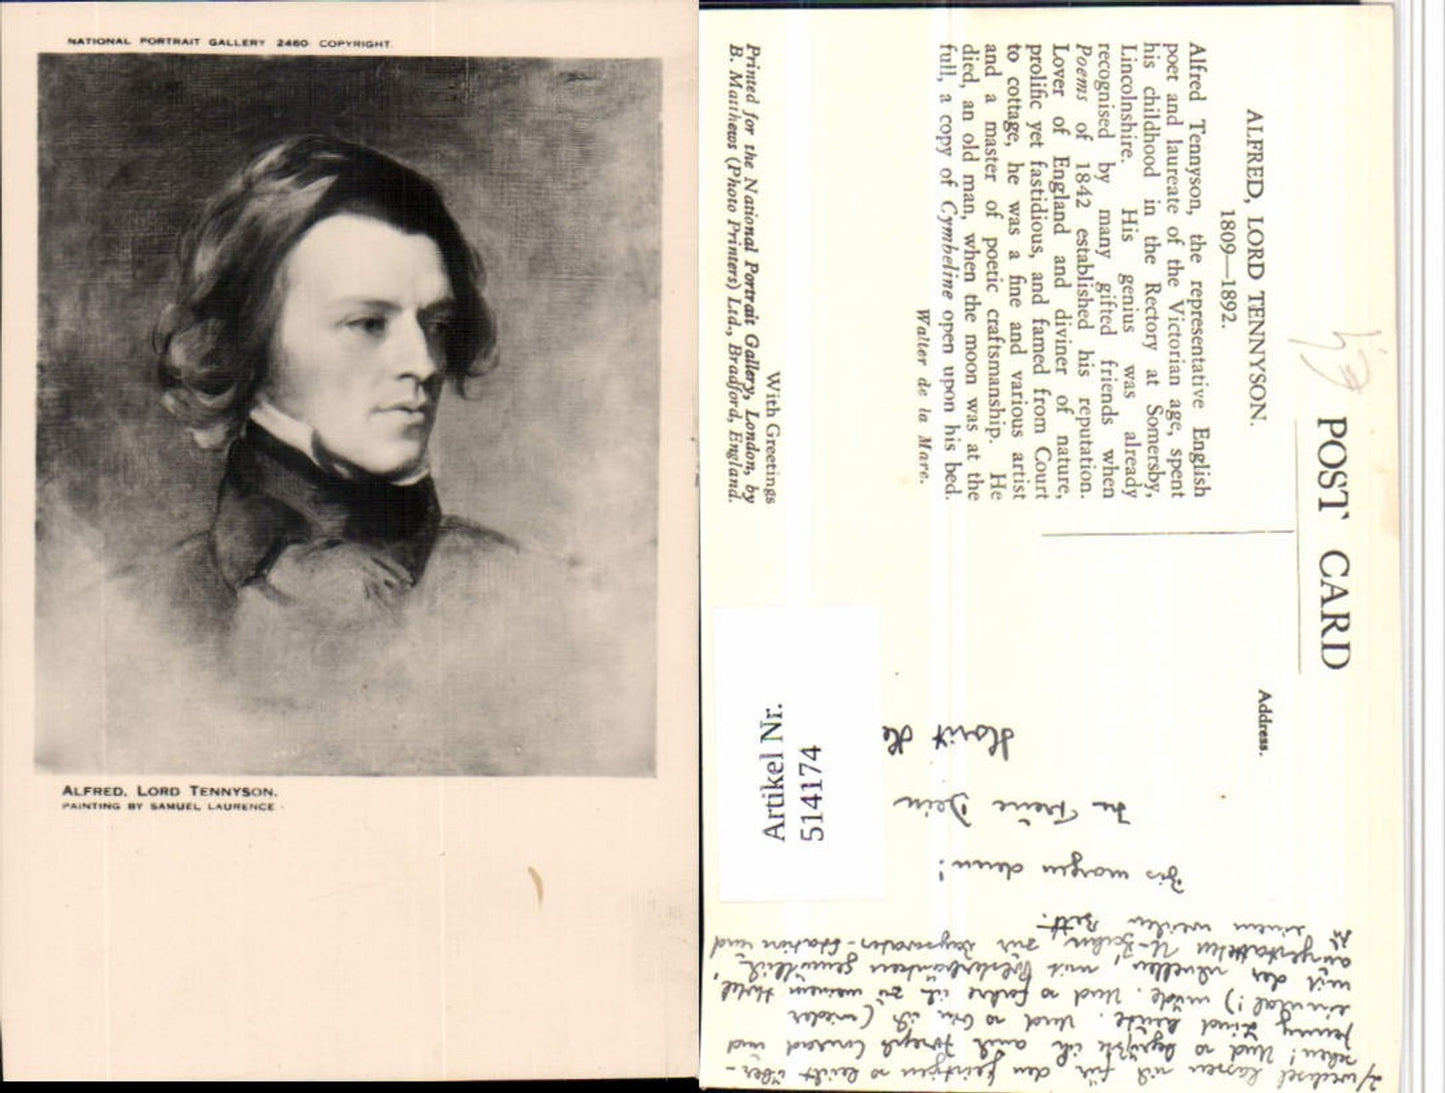 NATIONAL PORTRAIT GALLERY 2460 COPYRIGHT.
ALFRED, LORD TENNYSON.
PAINTING BY SAMUEL LAURENCE
POST CARD
ALFRED, LORD TENNYSON.
1809—1892.
Alfred Tennyson, the representative English
poet and laureate of the Victorian age, spent
his childhood in the Rectory at Somersby,
Lincolnshire. His genius was already
recognised by many gifted friends when
Poems of 1842 established his reputation.
Lover of England and diviner of nature,
prolific yet fastidious, and famed from Court
to cottage, he was a fine and various artist
and a master of poetic craftsmanship. He
died, an old man, when the moon was at the
full, a copy of Cymbeline open upon his bed.
Walter de la Mare.
With Greetings
Printed for the National Portrait Gallery, London, by
B. Matthews (Photo Printers) Ltd., Bradford, England.
Address.
Artikel Nr.
514174
2/ wechsel lassen sich für den geistigen so leicht über-
sehen! Und so begrüßte ich auch Joseph Conrad und
Jenny Lind heute. Und so bin ich (wieder
einmal!) müde. Und so fahre ich zu meinem Hotel,
mit der schnellen, mit gemütlich
ausgestatteten U-Bahn zur Bayswater-Station und
zu einem weichen Bett.
Bis morgen denn!
In Treue Dein